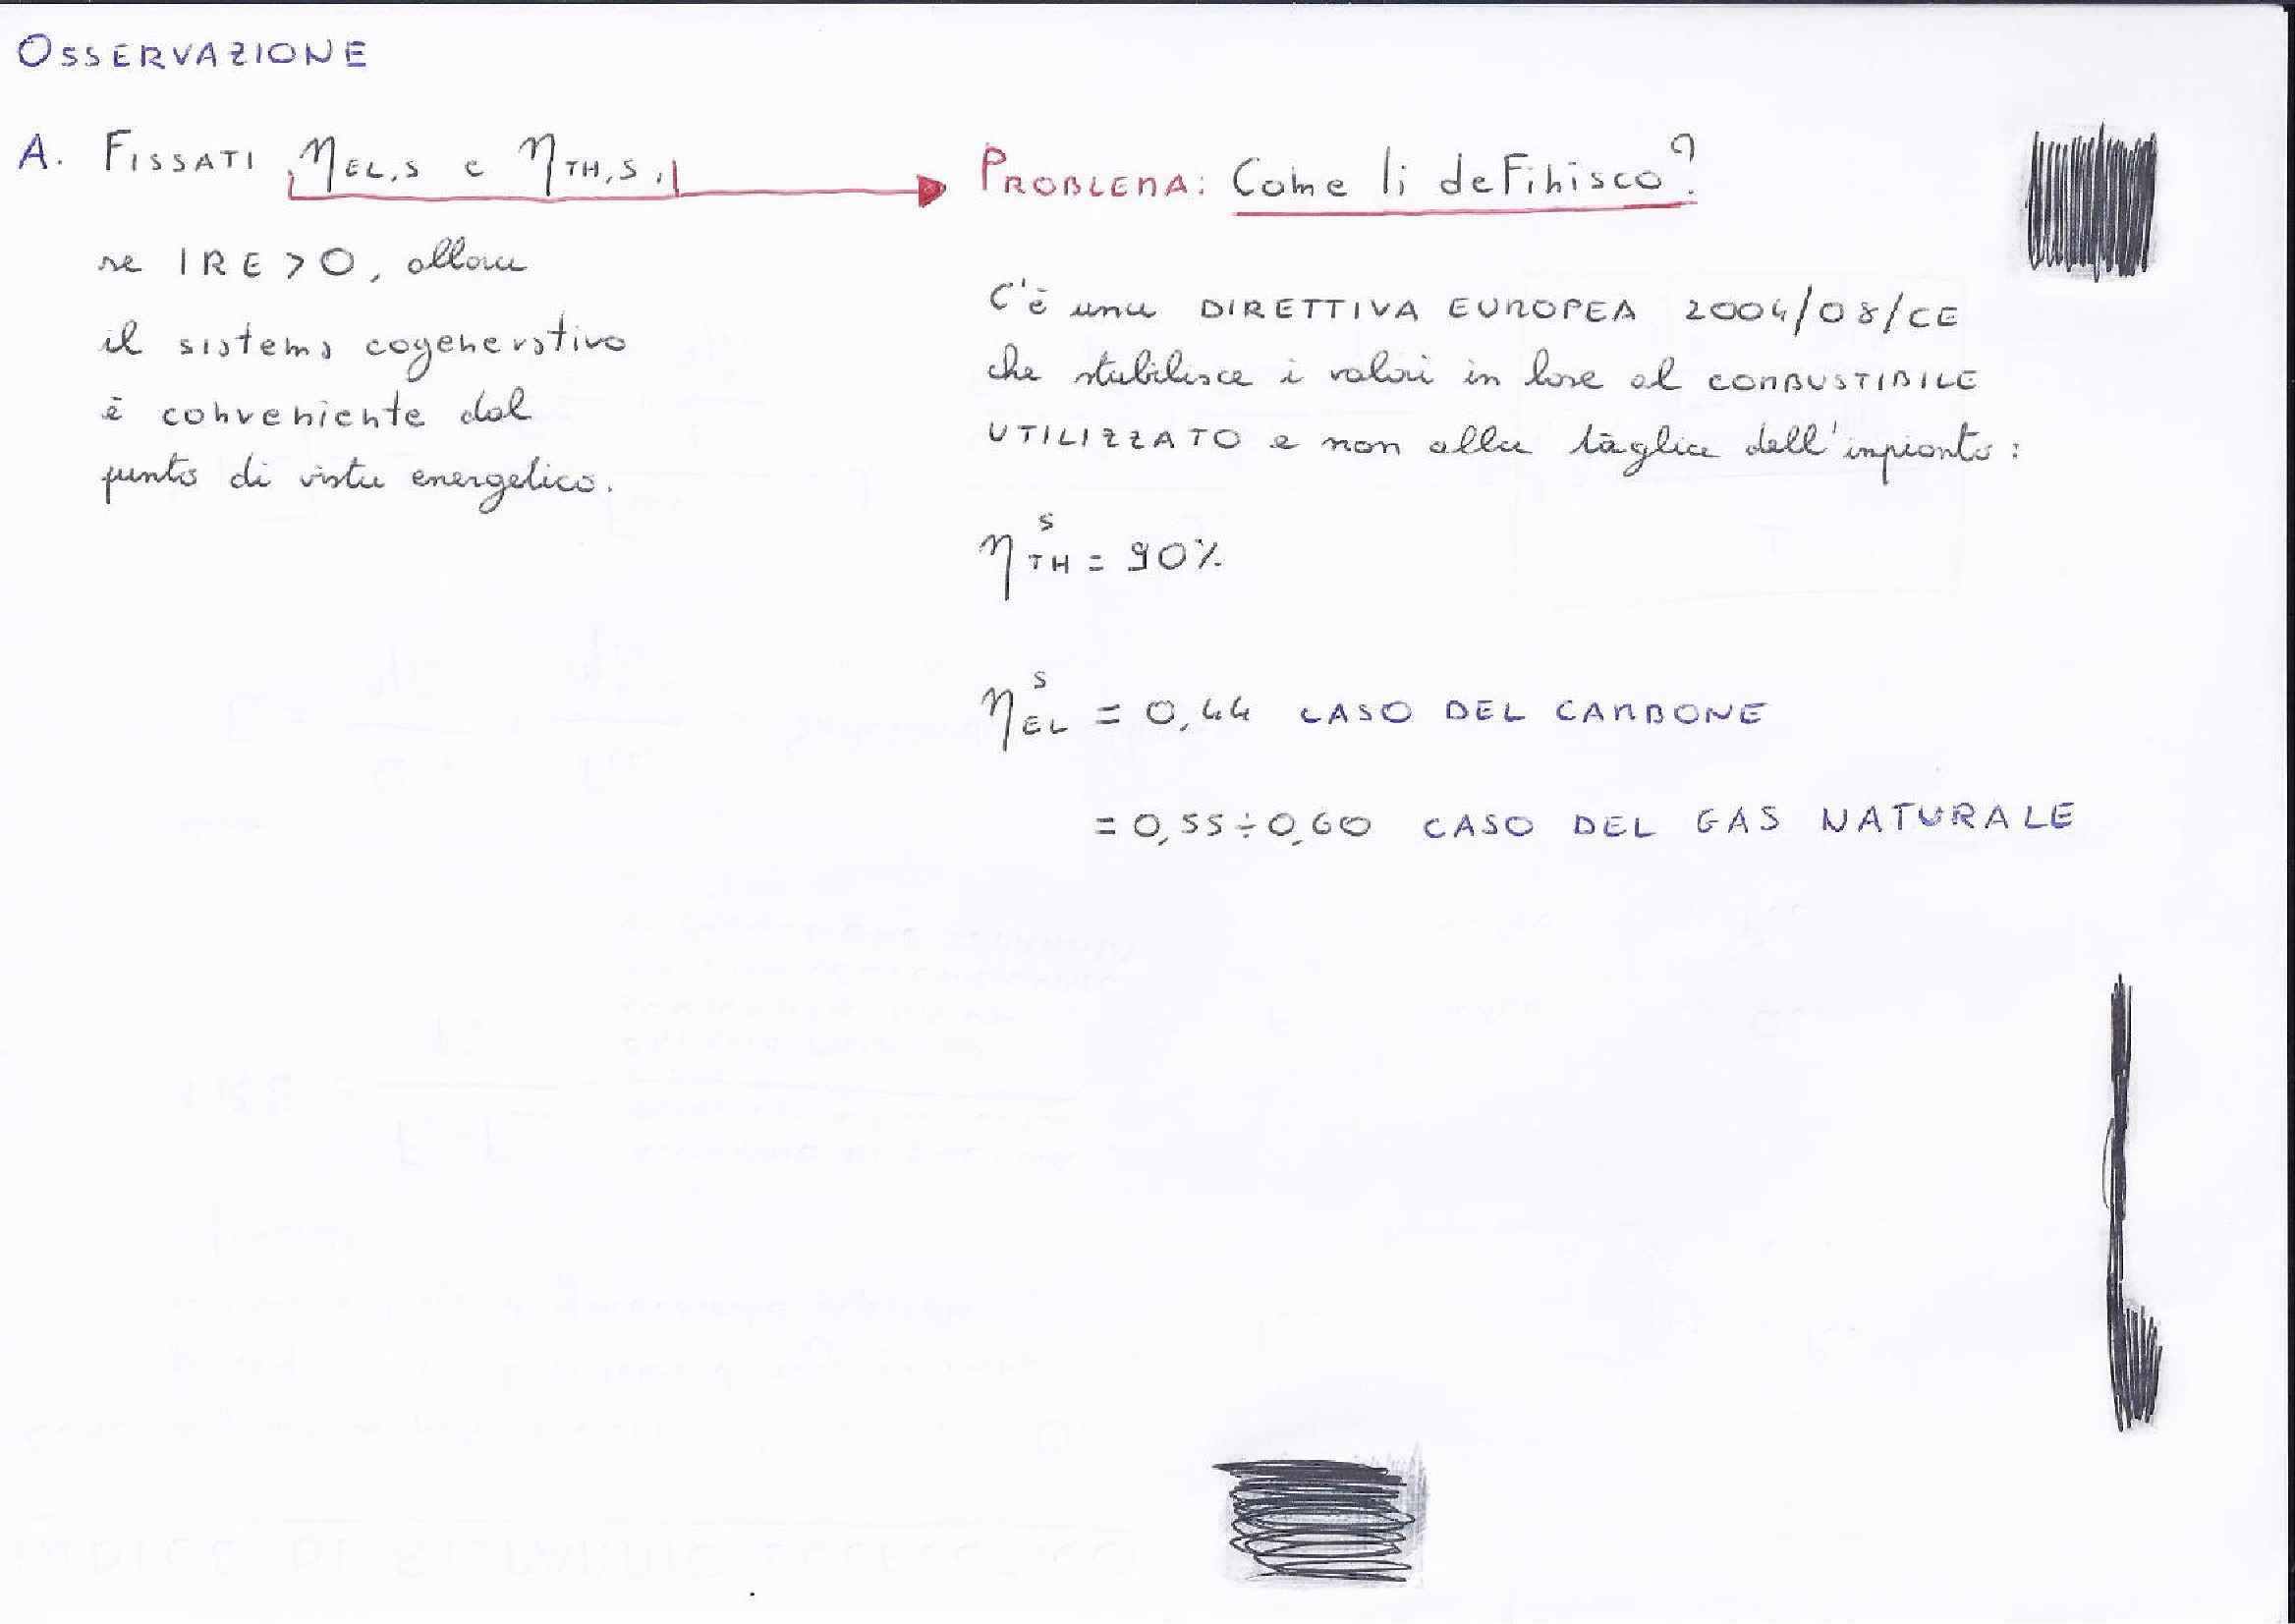 OSSERVAZIONE
A. FISSATI η EL,S e η TH,S,
se IRE > 0, allora
il sistema cogenerativo
è conveniente dal
punto di vista energetico.
PROBLEMA: Come li definisco?
C'è una DIRETTIVA EUROPEA 2004/08/CE
che stabilisce i valori in base al COMBUSTIBILE
UTILIZZATO e non alla taglia dell'impianto:
η^S TH = 90%
η^S EL = 0,44 CASO DEL CARBONE
= 0,55÷0,60 CASO DEL GAS NATURALE